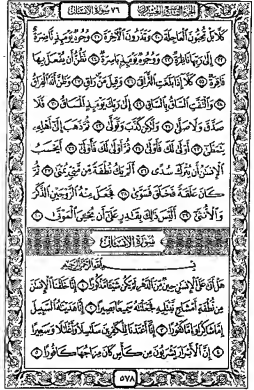 الجزء التاسع والعشرون ٧٦ سورة الإنسان
كَلَّا بَلْ تُحِبُّونَ ٱلْعَاجِلَةَ ٢٠ وَتَذَرُونَ ٱلْءَاخِرَةَ ٢١ وُجُوهٌ يَوْمَئِذٍ نَّاضِرَةٌ ٢٢
إِلَىٰ رَبِّهَا نَاظِرَةٌ ٢٣ وَوُجُوهٌ يَوْمَئِذٍۭ بَاسِرَةٌ ٢٤ تَظُنُّ أَن يُفْعَلَ بِهَا
فَاقِرَةٌ ٢٥ كَلَّآ إِذَا بَلَغَتِ ٱلتَّرَاقِىَ ٢٦ وَقِيلَ مَنْ رَاقٍ ٢٧ وَظَنَّ أَنَّهُ ٱلْفِرَاقُ
٢٨ وَٱلْتَفَّتِ ٱلسَّاقُ بِٱلسَّاقِ ٢٩ إِلَىٰ رَبِّكَ يَوْمَئِذٍ ٱلْمَسَاقُ ٣٠ فَلَا
صَدَّقَ وَلَا صَلَّىٰ ٣١ وَلَٰكِن كَذَّبَ وَتَوَلَّىٰ ٣٢ ثُمَّ ذَهَبَ إِلَىٰٓ أَهْلِهِۦ
يَتَمَطَّىٰٓ ٣٣ أَوْلَىٰ لَكَ فَأَوْلَىٰ ٣٤ ثُمَّ أَوْلَىٰ لَكَ فَأَوْلَىٰٓ ٣٥ أَيَحْسَبُ
ٱلْإِنسَٰنُ أَن يُتْرَكَ سُدًى ٣٦ أَلَمْ يَكُ نُطْفَةً مِّن مَّنِىٍّ يُمْنَىٰ ٣٧ ثُمَّ
كَانَ عَلَقَةً فَخَلَقَ فَسَوَّىٰ ٣٨ فَجَعَلَ مِنْهُ ٱلزَّوْجَيْنِ ٱلذَّكَرَ
وَٱلْأُنثَىٰٓ ٣٩ أَلَيْسَ ذَٰلِكَ بِقَٰدِرٍ عَلَىٰٓ أَن يُحْـِۧىَ ٱلْمَوْتَىٰ ٤٠
سُورَةُ الإِنسَانِ
بِسْمِ ٱللَّهِ ٱلرَّحْمَٰنِ ٱلرَّحِيمِ
هَلْ أَتَىٰ عَلَى ٱلْإِنسَٰنِ حِينٌ مِّنَ ٱلدَّهْرِ لَمْ يَكُن شَيْـًٔا مَّذْكُورًا ١ إِنَّا خَلَقْنَا ٱلْإِنسَٰنَ
مِن نُّطْفَةٍ أَمْشَاجٍ نَّبْتَلِيهِ فَجَعَلْنَٰهُ سَمِيعًۢا بَصِيرًا ٢ إِنَّا هَدَيْنَٰهُ ٱلسَّبِيلَ
إِمَّا شَاكِرًا وَإِمَّا كَفُورًا ٣ إِنَّآ أَعْتَدْنَا لِلْكَٰفِرِينَ سَلَٰسِلَا۟ وَأَغْلَٰلًا وَسَعِيرًا
٤ إِنَّ ٱلْأَبْرَارَ يَشْرَبُونَ مِن كَأْسٍ كَانَ مِزَاجُهَا كَافُورًا ٥
٥٧٨